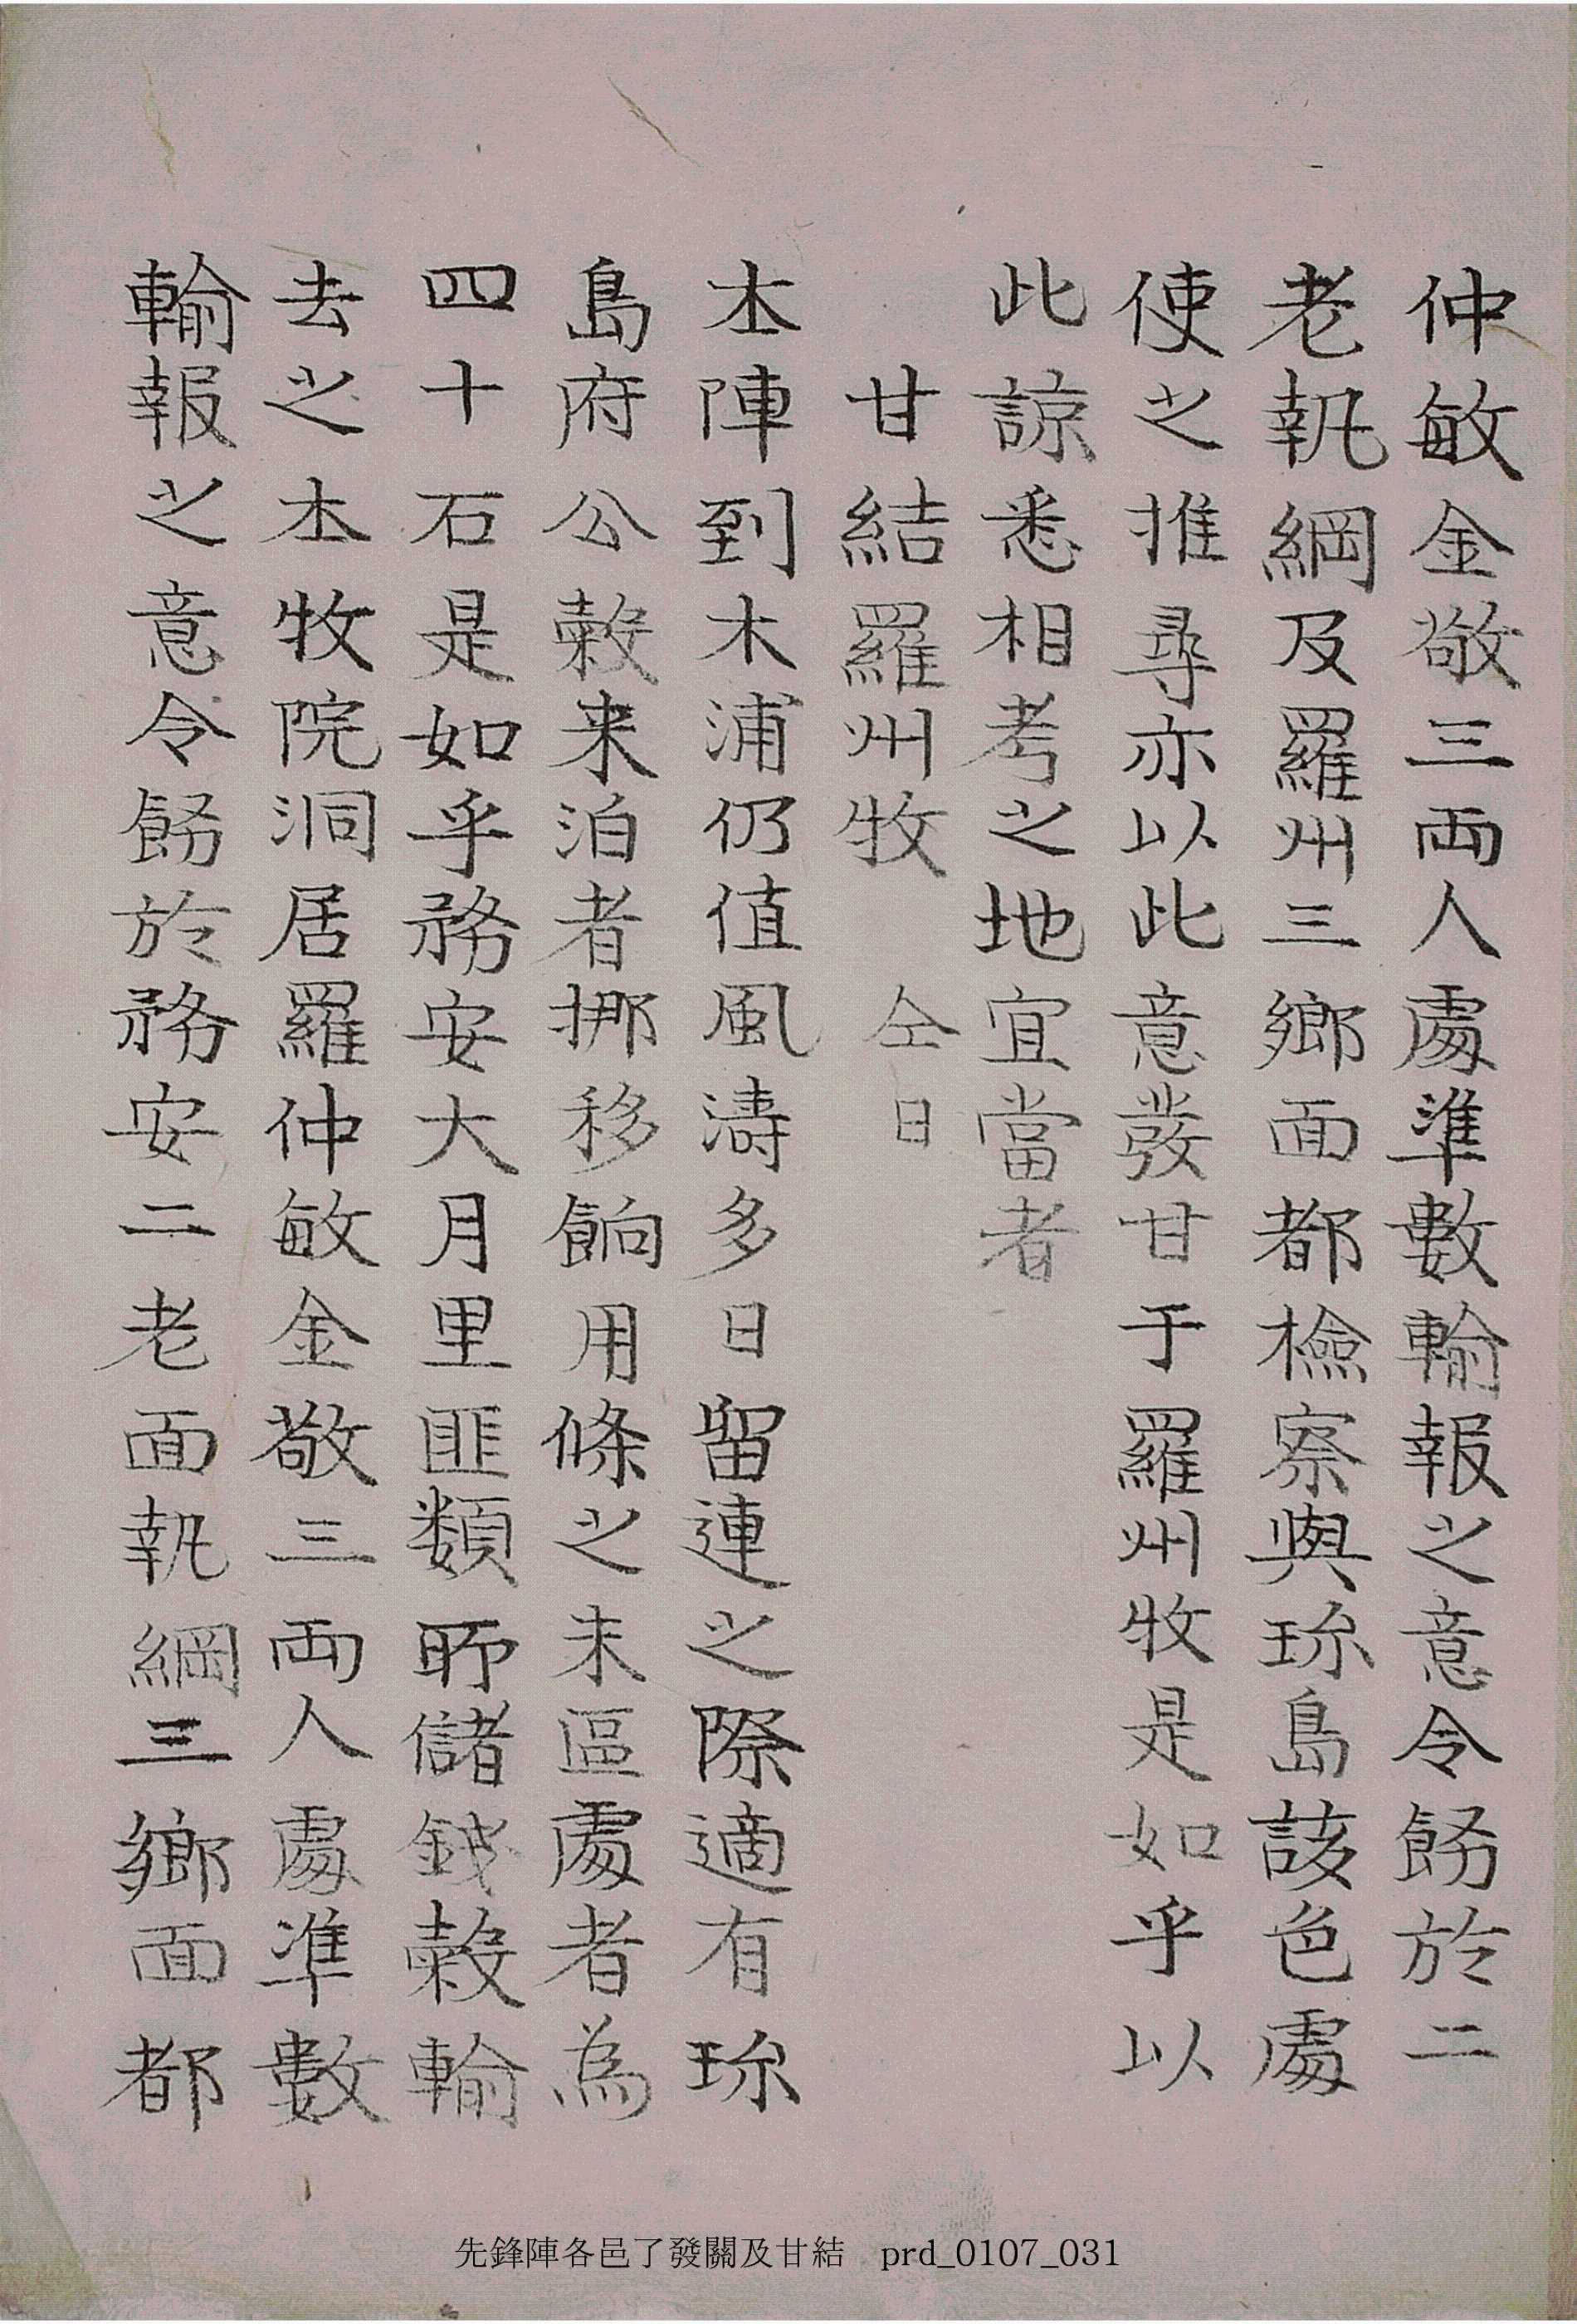 仲敏金敬三両人處準數輸報之意令飭於二
老執綱及羅州三鄉面都檢察與珎島該色處
使之推尋亦以此意發甘于羅州牧是如乎以
此諒悉相考之地宜當者
甘結羅州牧 仝日
本陣到木浦仍值風濤多日留連之際適有珎
島府公糓来泊者挪移餉用條之未區處者為
四十石是如乎務安大月里匪類所儲錢糓輸
去之本牧院洞居羅仲敏金敬三両人處準數
輸報之意令飭於務安二老面執綱三鄉面都
先鋒陣各邑了發關及甘結 prd_0107_031